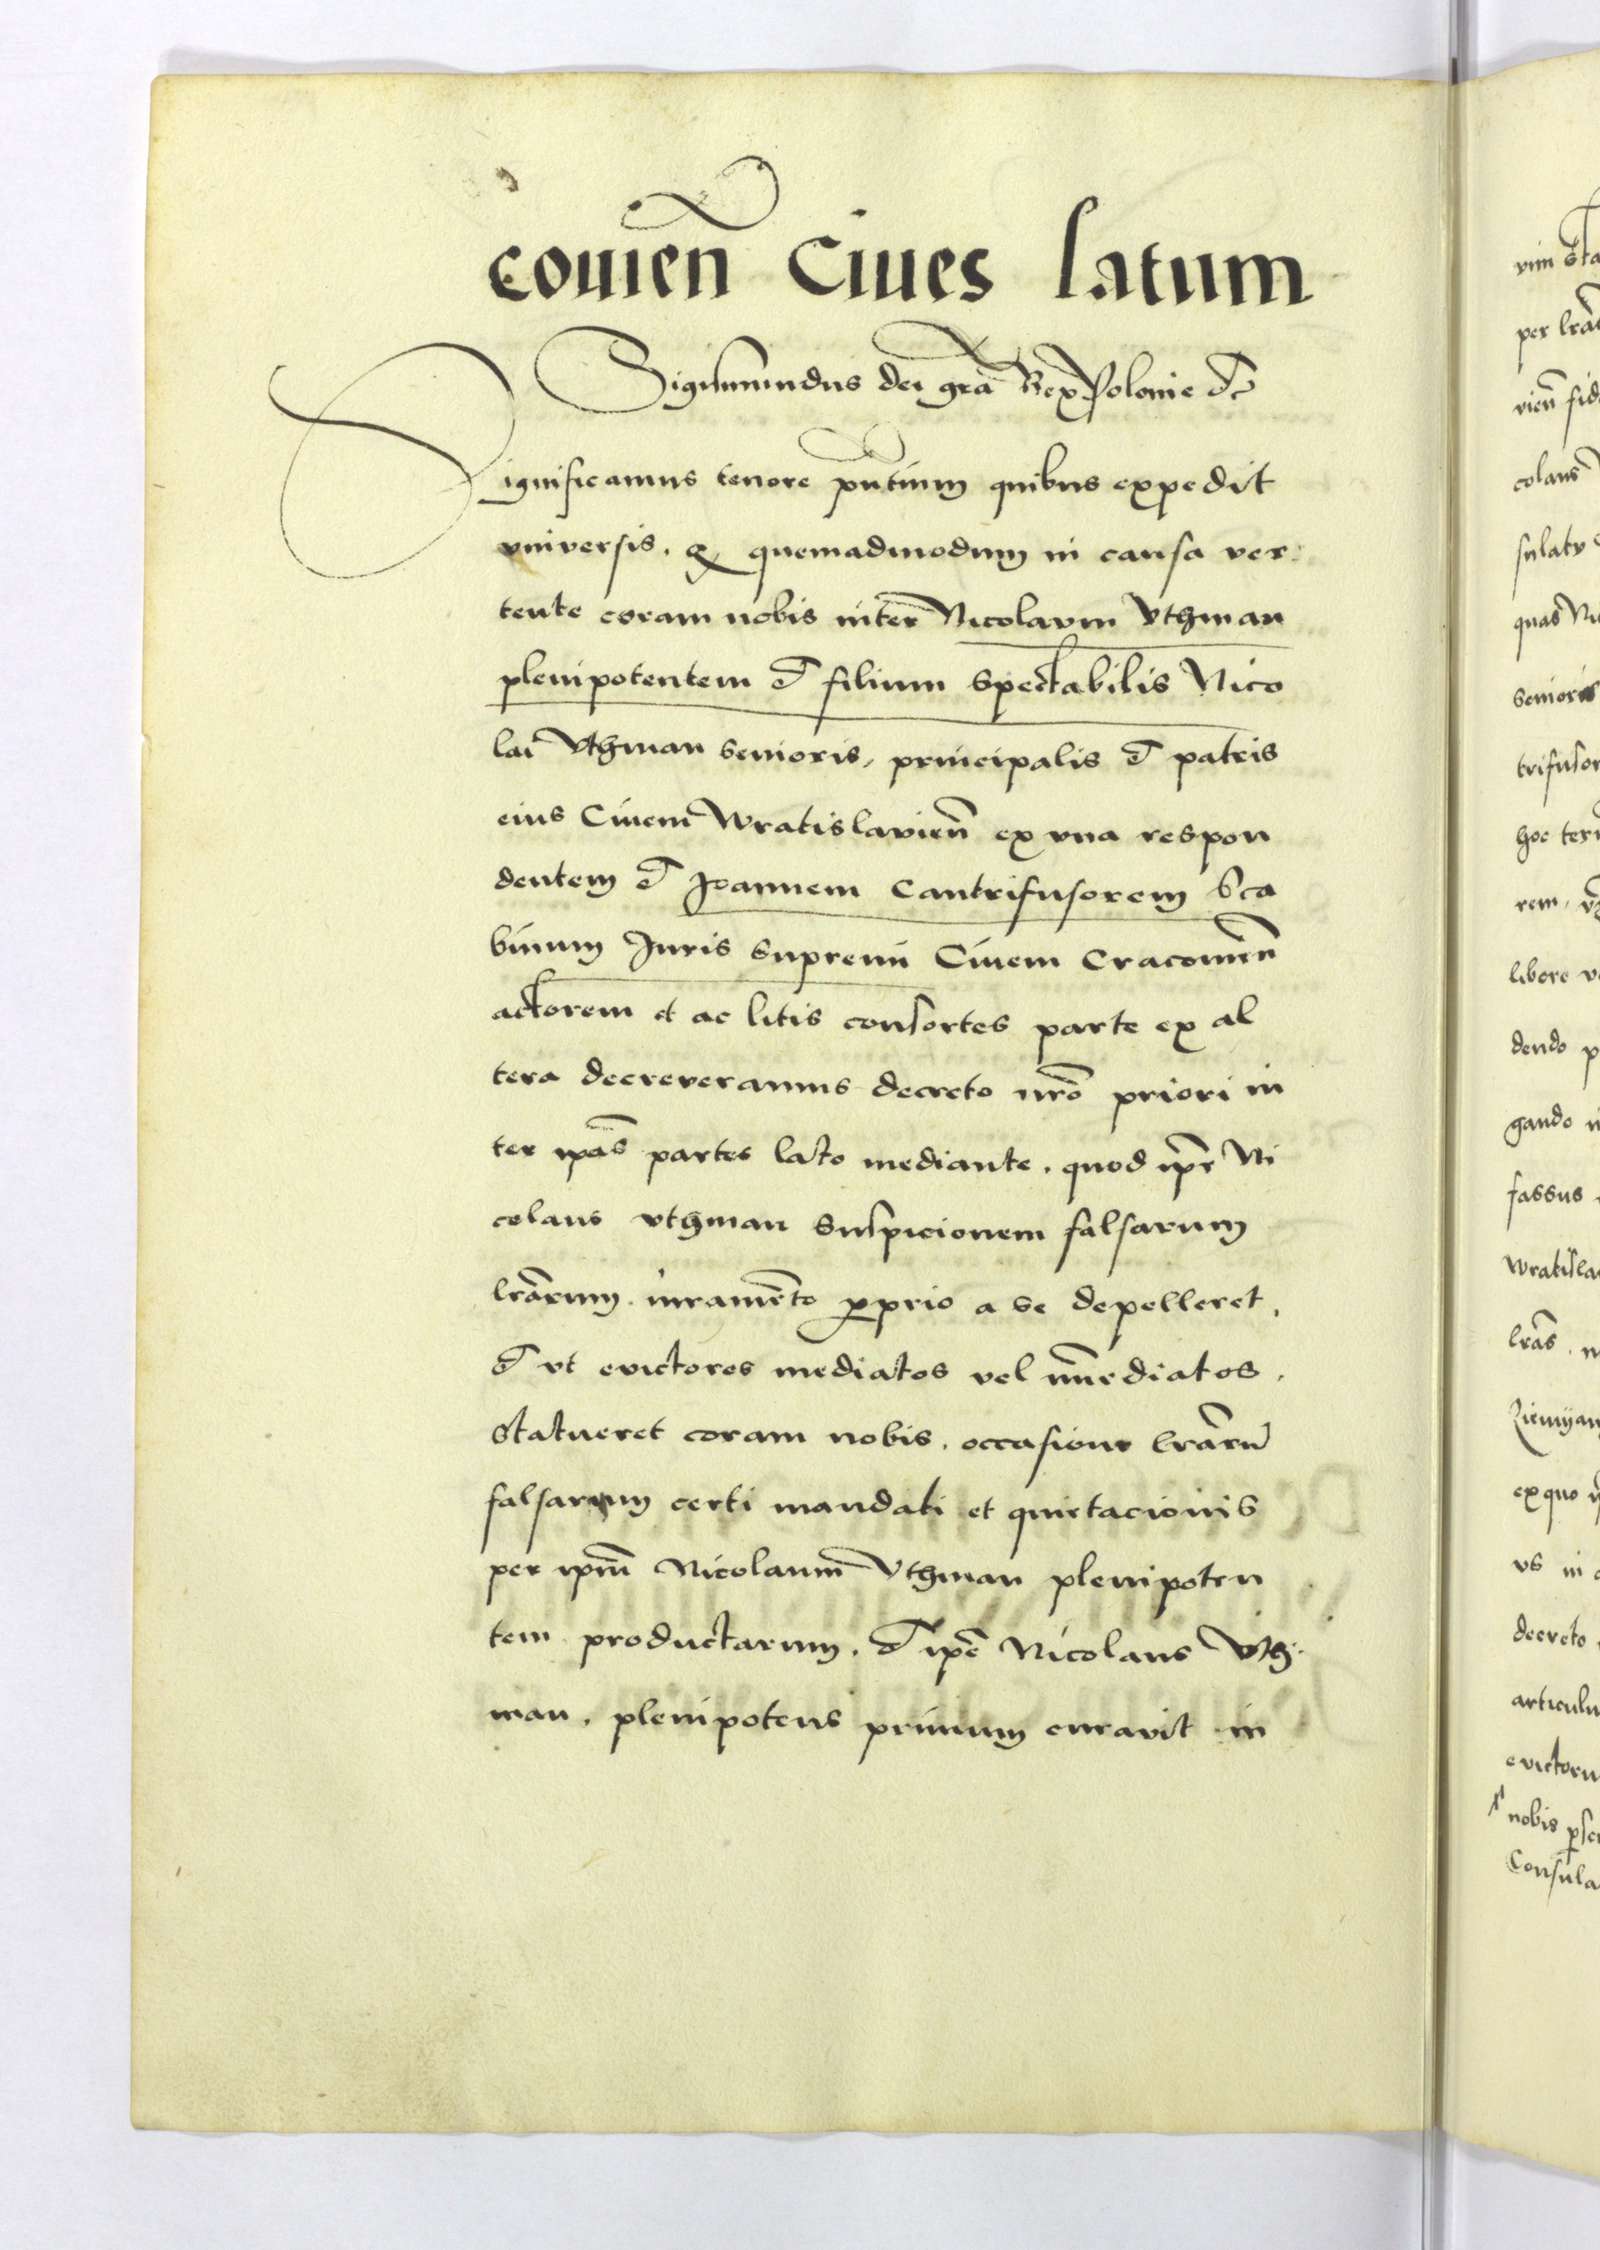 couien̄ Ciues latum
Sigismundus dei gr̄a Rex Polonie etc
Significamus tenore pn̄tium quibus expedit
vniversis. q̄ quemadmodum in causa ver:
tente coram nobis inter Nicolaum Vthman
plenipotentem et filium Spectabilis Nico
lai Vthman Senioris, principalis et patris
eius Civem Wratislavien̄ ex vna respon
dentem et Joannem Cantrifusorem Sca
binum Juris Supremi Civem Cracouien̄
actorem et ac litis consortes parte ex al
tera decreveramus decreto nr̄o priori in
ter ip̄as partes lato mediante. quod ip̄e Ni
colaus Vthman Suspicionem falsarum
lr̄arum iuramento proprio a se depelleret,
et vt evictores mediatos vel im̄ediatos,
statueret coram nobis. occasione lr̄arū
falsarum certi mandati et quietacionis
per ip̄m Nicolaum Vthman plenipoten
tem productarum. et ip̄e Nicolaus Vth:
man. plenipotens primum curavit in
per
colaus
senioris
dendo
fassus
ex quo
decreto
nobis